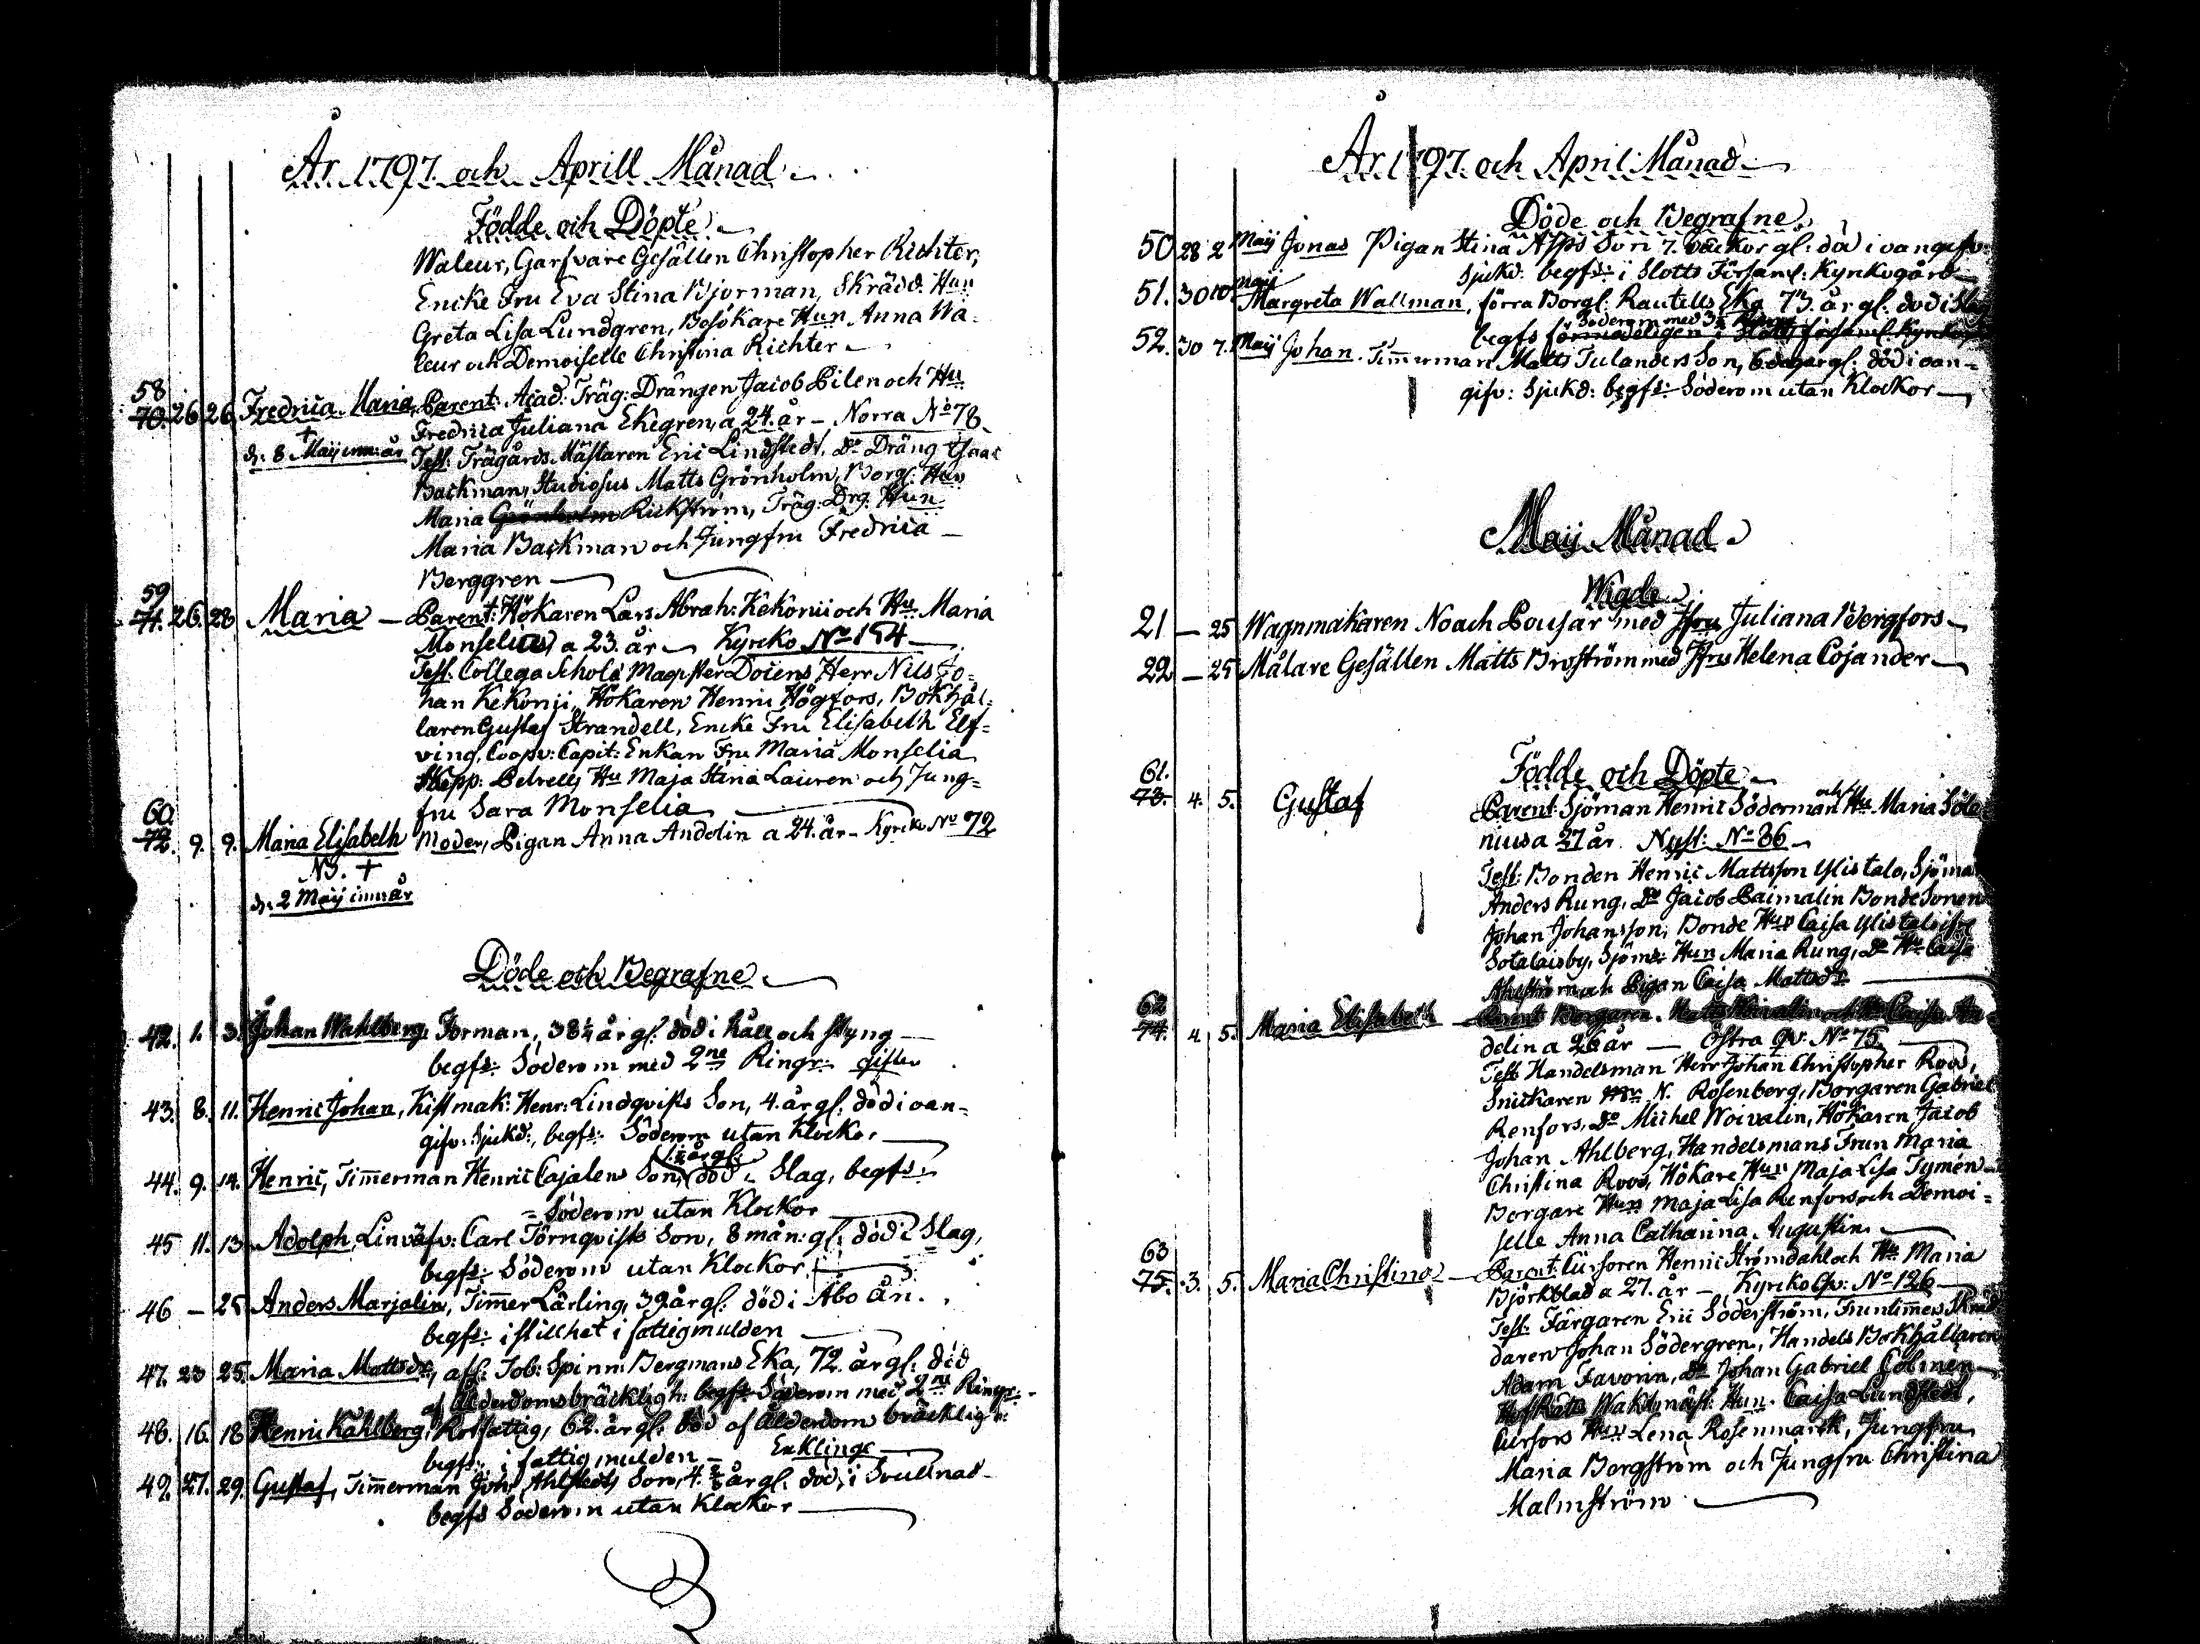 År 1797. och Aprill Månad.
Födde och Döpte.
Waleur, Garfvare Gesällen Christopher Richter,
Encke Fru Eva Stina Bjorman, Skrädd: Hun
Greta Lisa Lundgren, Besökare Hun Anna Wa-
leur och Demoiselle Christina Richter
58
70. 26 26. Fredrica Maria, Parent: Acad: Träg: Drängen Jacob Pilen och Hu
Fredrica Juliana Ekegren, a 24. år – Norra No 78.
+
d: 8 Maij inn: år
Test: Trägårds Mästaren Eric Lindstedt, Do Dräng Isaac
Backman, Studiosus Matts Grönholm, Borg: Hun
Maria Grönholm Rickström, Träg: Drg. Hun
Maria Backman och Jungfru Fredrica –
Berggren
59
71. 26. 28 Maria – Parent: Hökaren Lars Abrah: Kekonii och Hu Maria
Monselius, a 23. år – Kyrcko No 154
Test: Collega Schole Magister Docens Herr Nils Jo-
han Kekonii, Hökaren Henric Högfors, Bokhål-
laren Gustaf Strandell, Encke Fru Elisabeth Elf-
ving, Coopv: Capit: Enkan Fru Maria Monselia
Skepp: Petrells Hu Maja Stina Lauren och Jung-
fru Sara Monselia
60
72. 9. 9. Maria Elisabeth Moder, Pigan Anna Andelin a 24. år – Kyrcko No 72
NB. +
d: 2 Maij inn: år
Döde och Begrafne.
42. 1. 3. Johan Wahlberg, Forman, 38 1/2 år gl: död i håll och styng
begfs: Söderom med 2ne Ringr: gifter
43. 8. 11. Henric Johan, Kistmak: Henr: Lindqvists Son, 4. år gl: död i oan-
gifv: Sjukd:, begfs: Söderom utan Klockor
44. 9. 14. Henric, Timerman Henric Cajalens Son, död i Slag, begfs:
Söderom utan Klockor
45 11. 13. Adolph, Linväfv: Carl Törnqvists Son, 8 mån: gl: död i Slag,
begfs: Söderom utan Klockor.
46 – 25 Anders Marjalin, Timer Lärling, 39 år gl: död i Åbo Ån.
begfs: i stillhet i fattigmulden
47. 23 25. Maria Mattsdr, afs: Tob: Spinn: Bergmans Eka, 72. år gl: död
af Ålderdoms bräckligh: begfs Söderom med 2ne Ringr:
48. 16. 18 Henric Kahlberg, Rotfattig, 62. år gl: död af Ålderdom bräckligh:
begfs: i fattigmulden – Enkling
49. 27. 29. Gustaf, Timerman Joh: Ahlstedts Son, 4. år gl: död i Svullnad
begfs Söderom utan Klockor
År 1797. och April Månad
Döde och Begrafne.
50 28 2 Maij Jonas Pigan Stina Asps Son 7. Veckor gl: död i oangifv:
Sjukd: begfs: i Slotts Församl: Kyrkogård
51. 30 10. Maij Margreta Wallman, förra Borgl: Rautells Eka 73. år gl: död i Slag
Söderom med
begfs förmodeligen i Slotts församl: Kyrkog
52. 30 7. Maij Johan. Timerman Matts Tulanders Son, 6 dagar gl: död i oan-
gifv: Sjukd: begfs: Söderom utan Klockor
Maij Månad
Wigde.
21 – 25 Wagnmakaren Noach Pousar med Jfru Juliana Bergfors
22 – 25 Målare Gesällen Matts Broström med Jfru Helena Cojander
Födde och Döpte
61.
73. 4. 5. Gustaf Parent: Sjöman Henric Söderman och Hu Maria Söla-
nius a 27 år. Nyst: No 86
Test: Bonden Henric Mattsson Ylistalo, Sjöman
Anders Rung, Do Jacob Paimalin Bonde Sonen
Johan Johansson, Bonde Hun Caisa Ylistalo
Sotalaisby, Sjöms: Hun Maria Rung, Do Hu Caisa
Ahlström och Pigan Caisa Mattsdr
62
74. 4. 5. Maria Elisabeth – Parent Borgaren Matts Woivalin och Hu Caisa An-
delin a 26 år — Östra Qv: No 75
Test Handelsman Herr Johan Christopher Roos,
Snickaren N. Rosenberg, Borgaren Gabriel
Renfors, Do Michel Woivalin, Hökaren Jacob
Johan Ahlberg, Handelsmans Frun Maria
Christina Roos, Hökare Hun Maja Lisa Tymén
Borgare Hun Maja Lisa Renfors och Demoi-
selle Anna Catharina Augustin
63
75. 3. 5. Maria Christina – Parent: Cursoren Henric Strömdahl och Hu Maria
Björkblad a 27. år – Kyrcko Qv: No 126
Test: Färgaren Eric Söderström, Fruntimers Skräd-
daren Johan Södergren, Handels Bokhållaren
Adam Favorin, Do Johan Gabriel Colmén
HofRätts Waktmäst: Hun. Caisa Lundstedt,
Cursors Hun Lena Rosenmarck, Jungfru
Maria Borgström och Jungfru Christina
Malmström